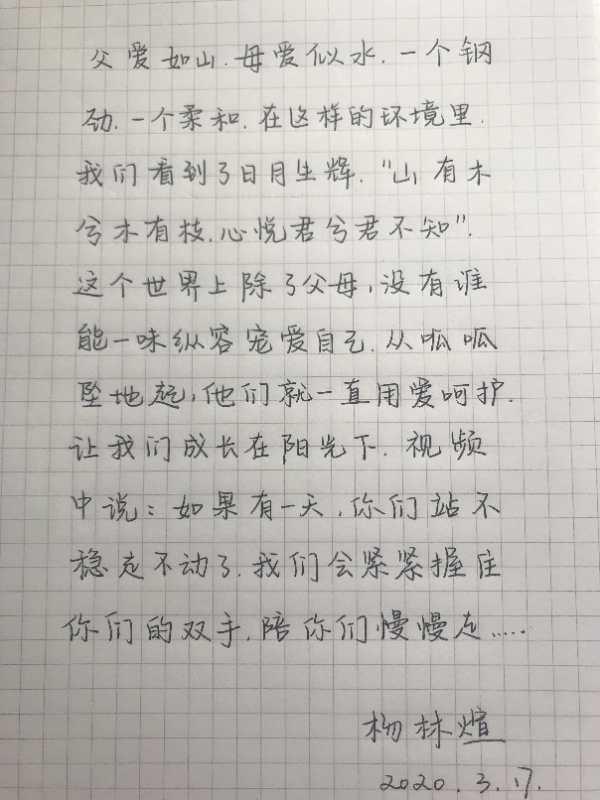 父爱如山.母爱似水.一个钢
劲.一个柔和.在这样的环境里.
我们看到了日月生辉.“山有木
兮木有枝.心悦君兮君不知”.
这个世界上除了父母,没有谁
能一味纵容宠爱自己.从呱呱
坠地起,他们就一直用爱呵护.
让我们成长在阳光下.视频
中说:如果有一天.你们站不
稳走不动了.我们会紧紧握住
你们的双手.陪你们慢慢走.....
杨林煊
2020.3.17.